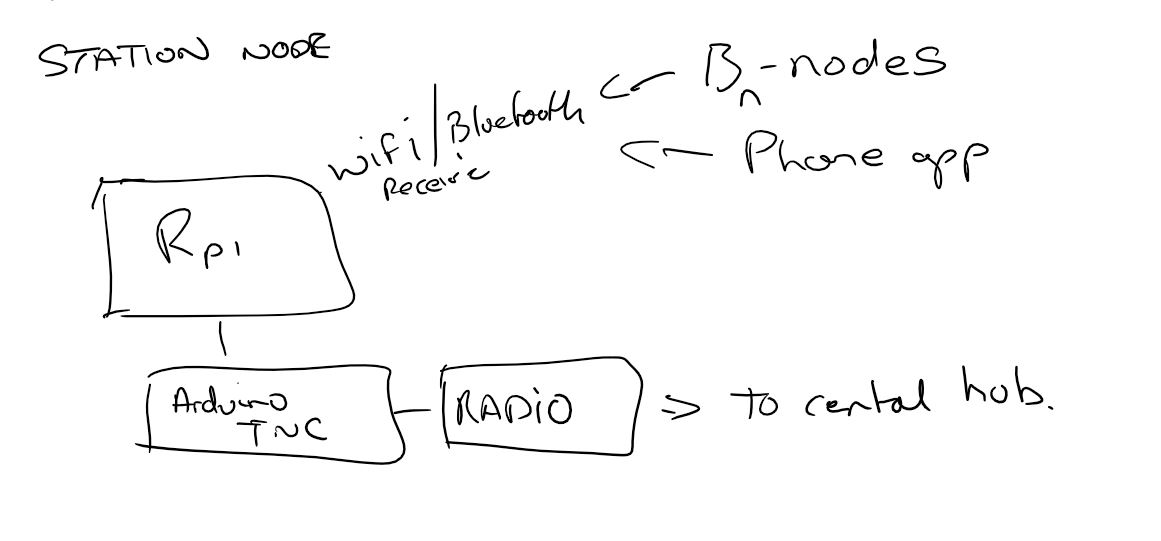 STATION NODE
Bn-nodes
Wifi/Bluetooth
Receive
Phone app
Rpi
Arduino
TNC
RADIO
=> to cental hub.